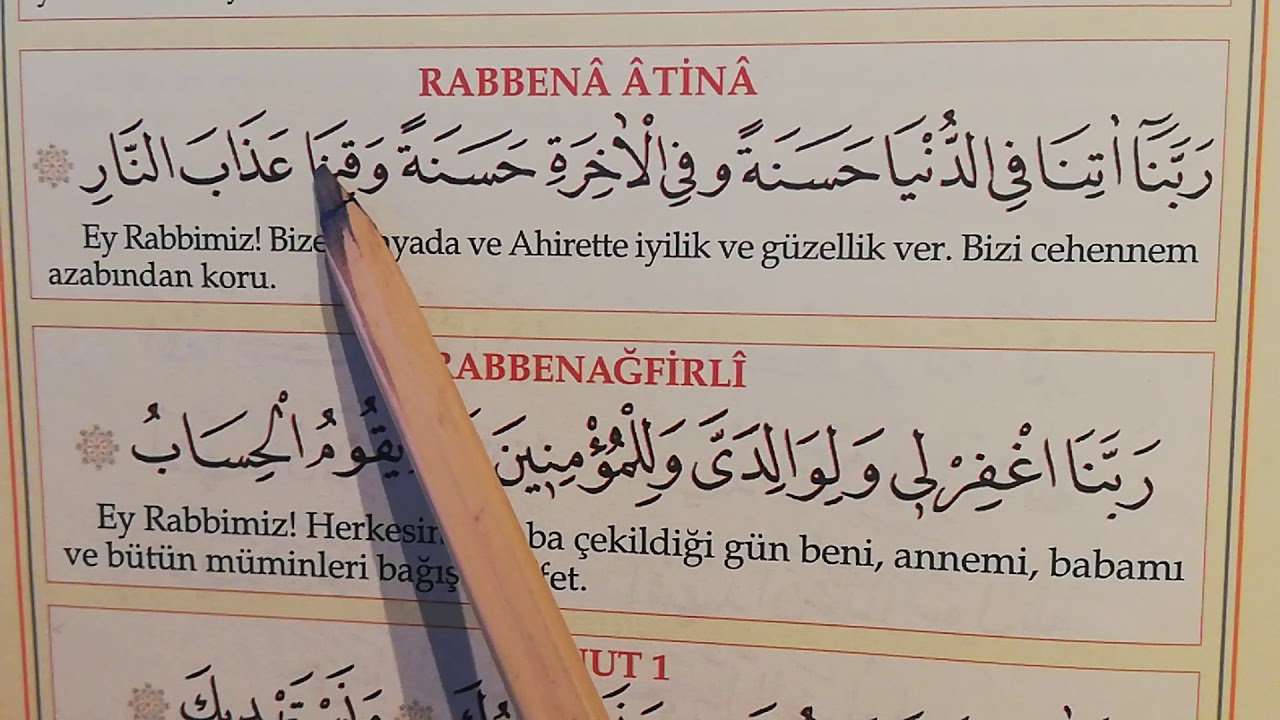 RABBENÂ ÂTİNÂ
رَبَّنَآ اٰتِنَا فِي الدُّنْيَا حَسَنَةً وَفِي الْاٰخِرَةِ حَسَنَةً وَقِنَا عَذَابَ النَّارِ
Ey Rabbimiz! Bize yada ve Ahirette iyilik ve güzellik ver. Bizi cehennem
azabından koru.
RABBENAĞFİRLÎ
رَبَّنَا اغْفِرْ لِي وَلِوَالِدَيَّ وَلِلْمُؤْمِنِينَ يَقُومُ الْحِسَابُ
Ey Rabbimiz! Herkesin ba çekildiği gün beni, annemi, babamı
ve bütün müminleri bağış fet.
UT 1